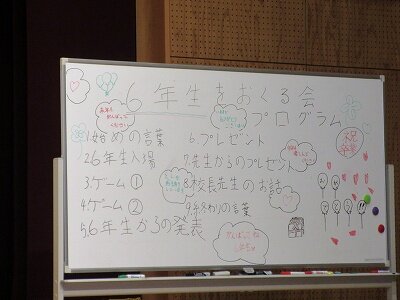 6年生をおくる会
プログラム
1.始めの言葉
2.6年生入場
3.ゲーム①
4.ゲーム②
5.6年生からの発表
6.プレゼント
7.先生からのプレゼント
8.校長先生のお話
9.終わりの言葉
卒業